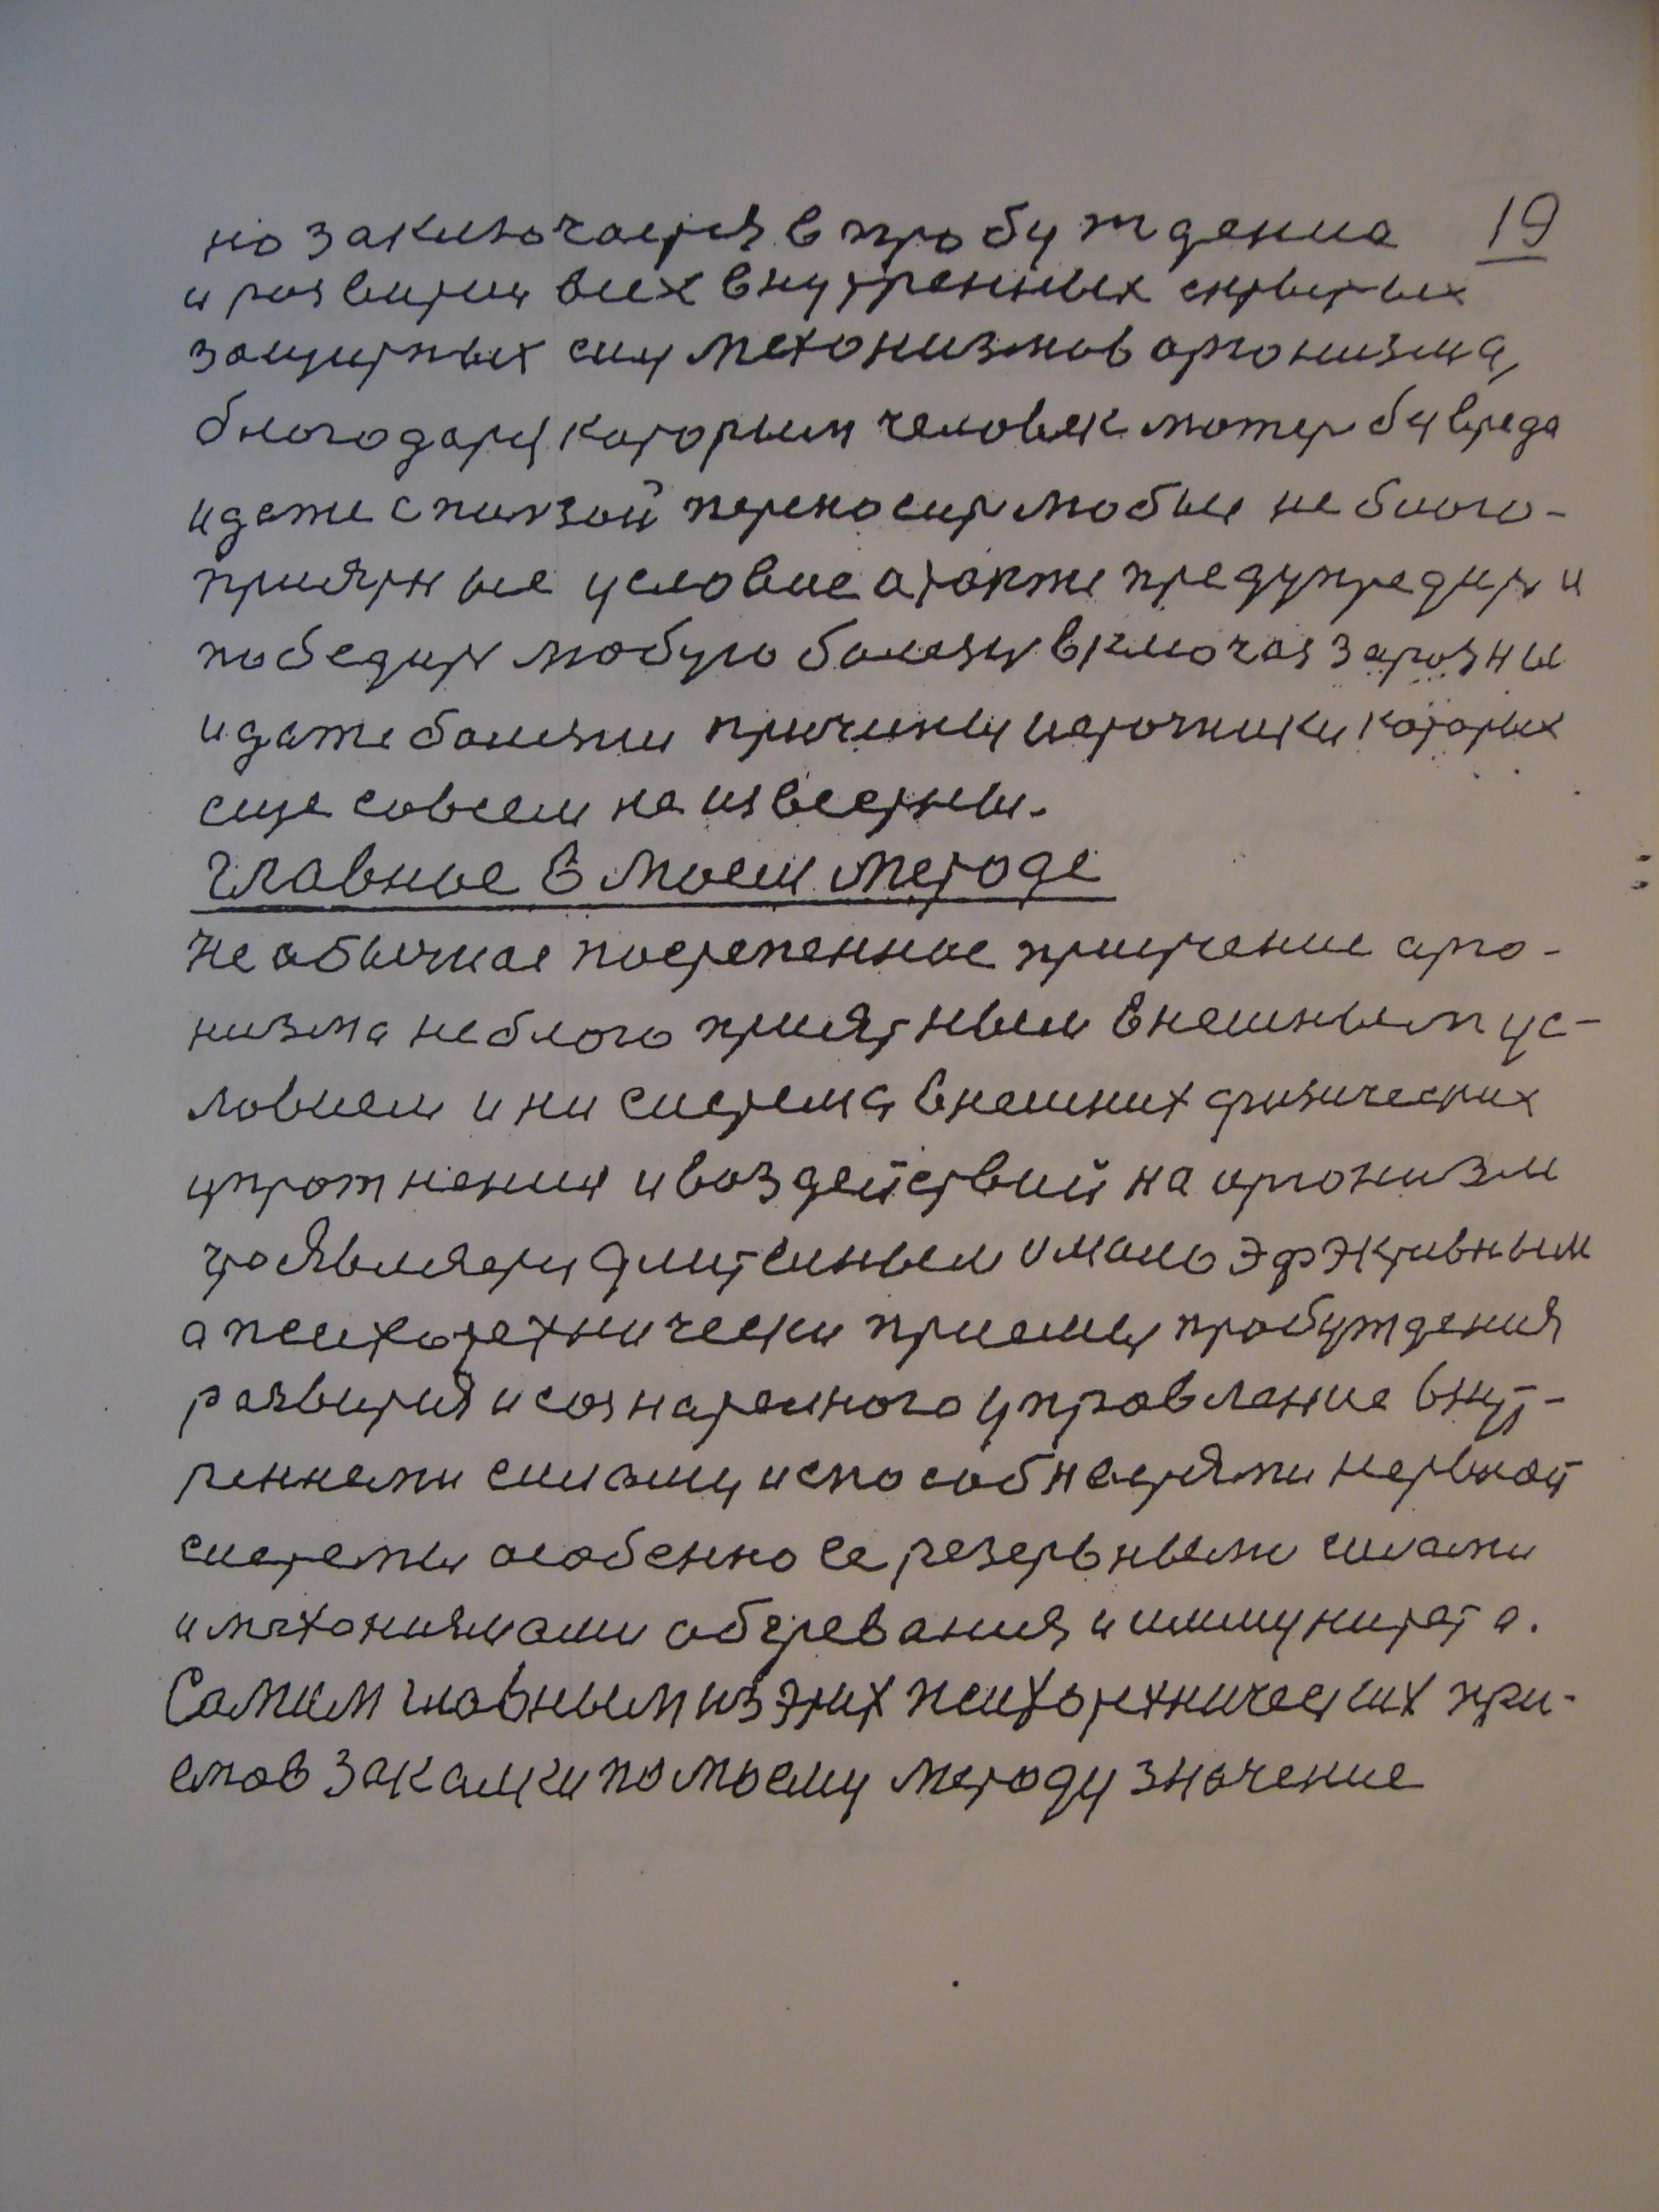 но заключается в пробуждение 19
и развития всех внутренных скрытых
защитных сил механизмов организма,
благодаря которым человек может без вреда
и даже с пользой переносить любые не благо-
приятные условие а также предупредить и
победить любую болезнь включая заразны
и даже болезни причины источники которых
еще совсем не известны.
Главное в моем методе
не обычное постепенное приучение орга-
низма не благо приятным внешным ус-
ловием и ни система внешних физических
упражнения и воздействий на организм
что является длительным и мало эфэктивным
а психотехнически приемы пробуждения
развития и сознательного управление внут-
ренними силами и способностями нервной
системы особенно ее резервными силами
и механизмами обгревания и иммунитета.
Самим главным из этих психотехнических при-
емов закалки по моему методу значение